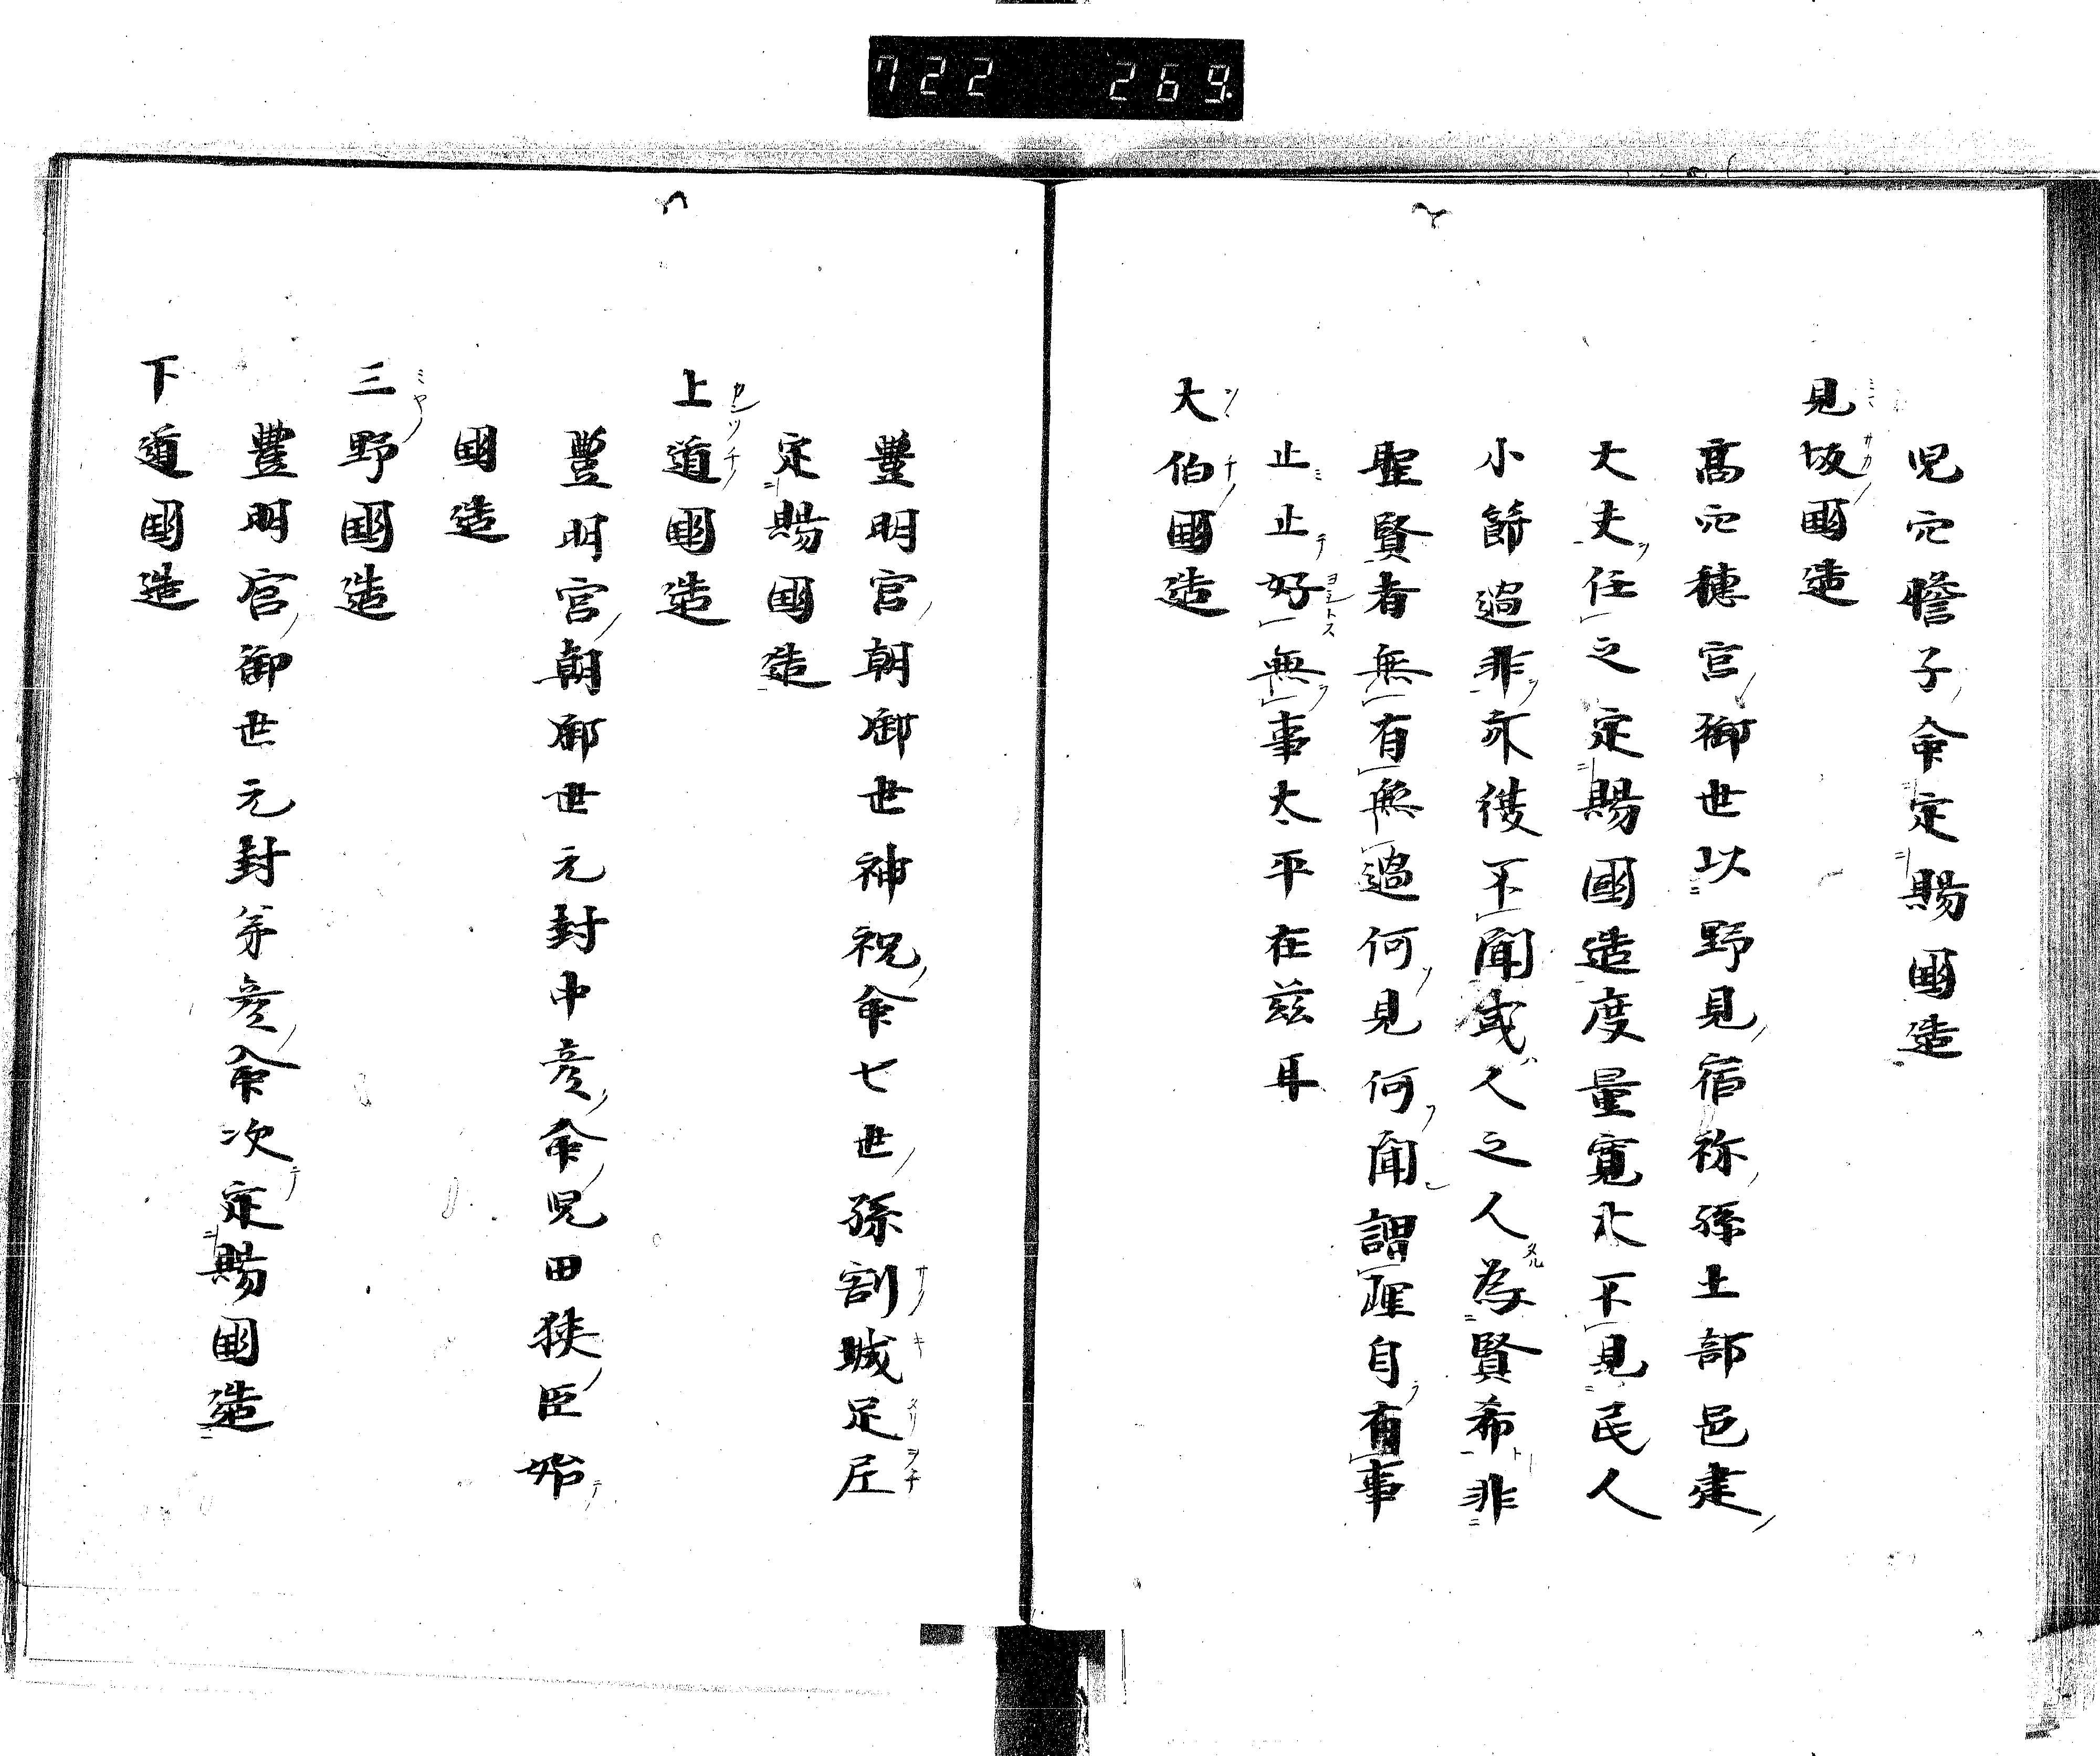 722 269
児穴瞻子命定賜國造
見坂國造
髙穴穗宮御世以野見宿祢孫土部邑建
大丈任之定賜國造度量寛大不見民人
小節過非亦復不聞或人之人為賢希非
聖賢者無有無過何見何聞謂聖自有事
止止好無事太平在兹耳
大伯國造
豐明宮朝御世神祝命七世孫割城足尼
定賜國造
上道國造
豐明宮朝御世元封中彦命児田狹臣始
國造
三野國造
豐明宮御世元封弟彦命次定賜國造
下道國造